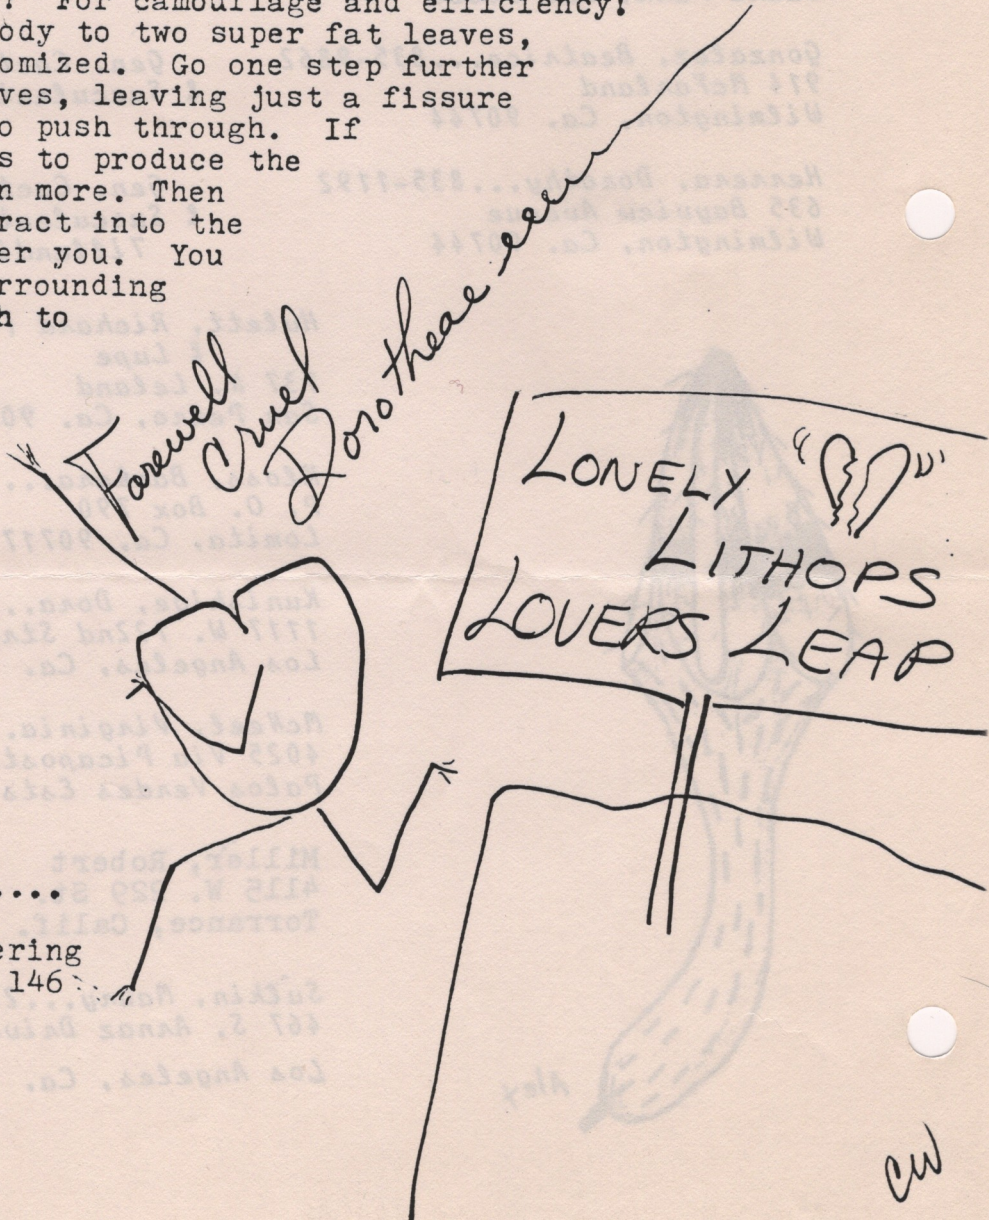 For camouflage and efficiency!
ody to two super fat leaves,
omized. Go one step further
ves, leaving just a fissure
o push through. If
s to produce the
n more. Then
ract into the
er you. You
rrounding
h to
Farewell
Cruel
Dorotheae-eeuu
LONELY " "
LITHOPS
LOVERS LEAP
....
ering
146
CW